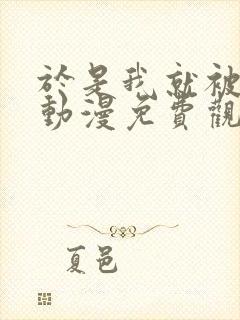 於是我就被
動漫免費觀
夏邑